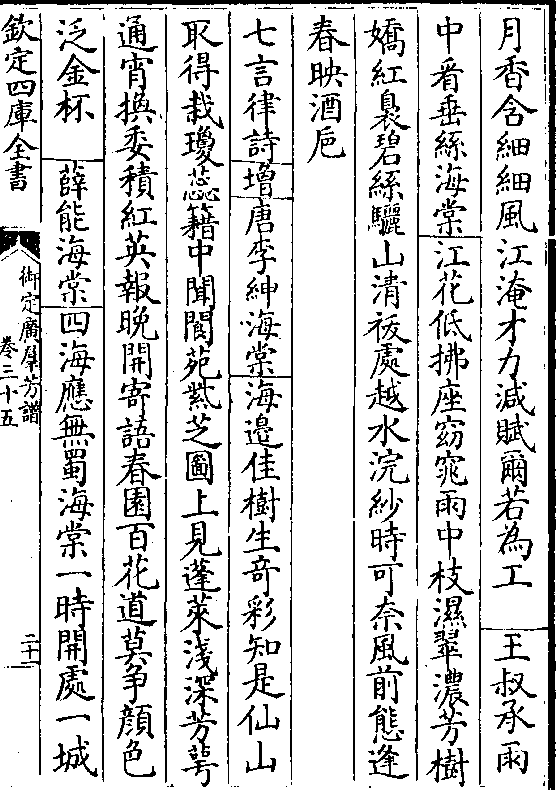 月香含細細風江淹才力減賦爾若為工　王叔承雨
中看垂絲海棠江花低拂座窈窕雨中枝濕翠濃芳樹
嬌紅裊碧絲驪山清祓處越水浣紗時可奈風前態逢
春映酒巵
七言律詩增唐李紳海棠海邉佳樹生竒彩知是仙山
取得栽瓊蕊籍中聞閬苑紫芝圖上見蓬萊淺深芳萼
通宵換委積紅英報晚開寄語春園百花道莫争顔色
泛金杯　薛能海棠四海應無蜀海棠一時開處一城
欽定四庫全書
御定廣羣芳譜
卷三十五
二十一